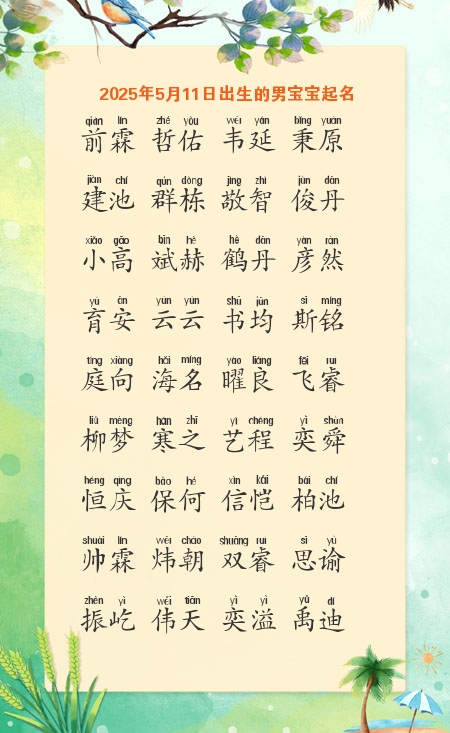 2025年5月11日出生的男宝宝起名
qián lín zhé yòu wéi yán bǐng yuán
前霖 哲佑 韦延 秉原
jiàn chí qún dòng jìng zhì jùn dān
建池 群栋 敬智 俊丹
xiǎo gāo bīn hè hè dān yàn rán
小高 斌赫 鹤丹 彦然
yù ān yún yún shū jūn sī míng
育安 云云 书均 斯铭
tíng xiàng hǎi míng yào liáng fēi ruì
庭向 海名 曜良 飞睿
liǔ mèng hán zhī yì chéng yì shùn
柳梦 寒之 艺程 奕舜
héng qìng bǎo hé xìn kǎi bǎi chí
恒庆 保何 信恺 柏池
shuài lín wěi cháo shuāng ruì sī yú
帅霖 炜朝 双睿 思谕
zhèn yì wěi tiān yì yì yǔ dí
振屹 伟天 奕溢 禹迪